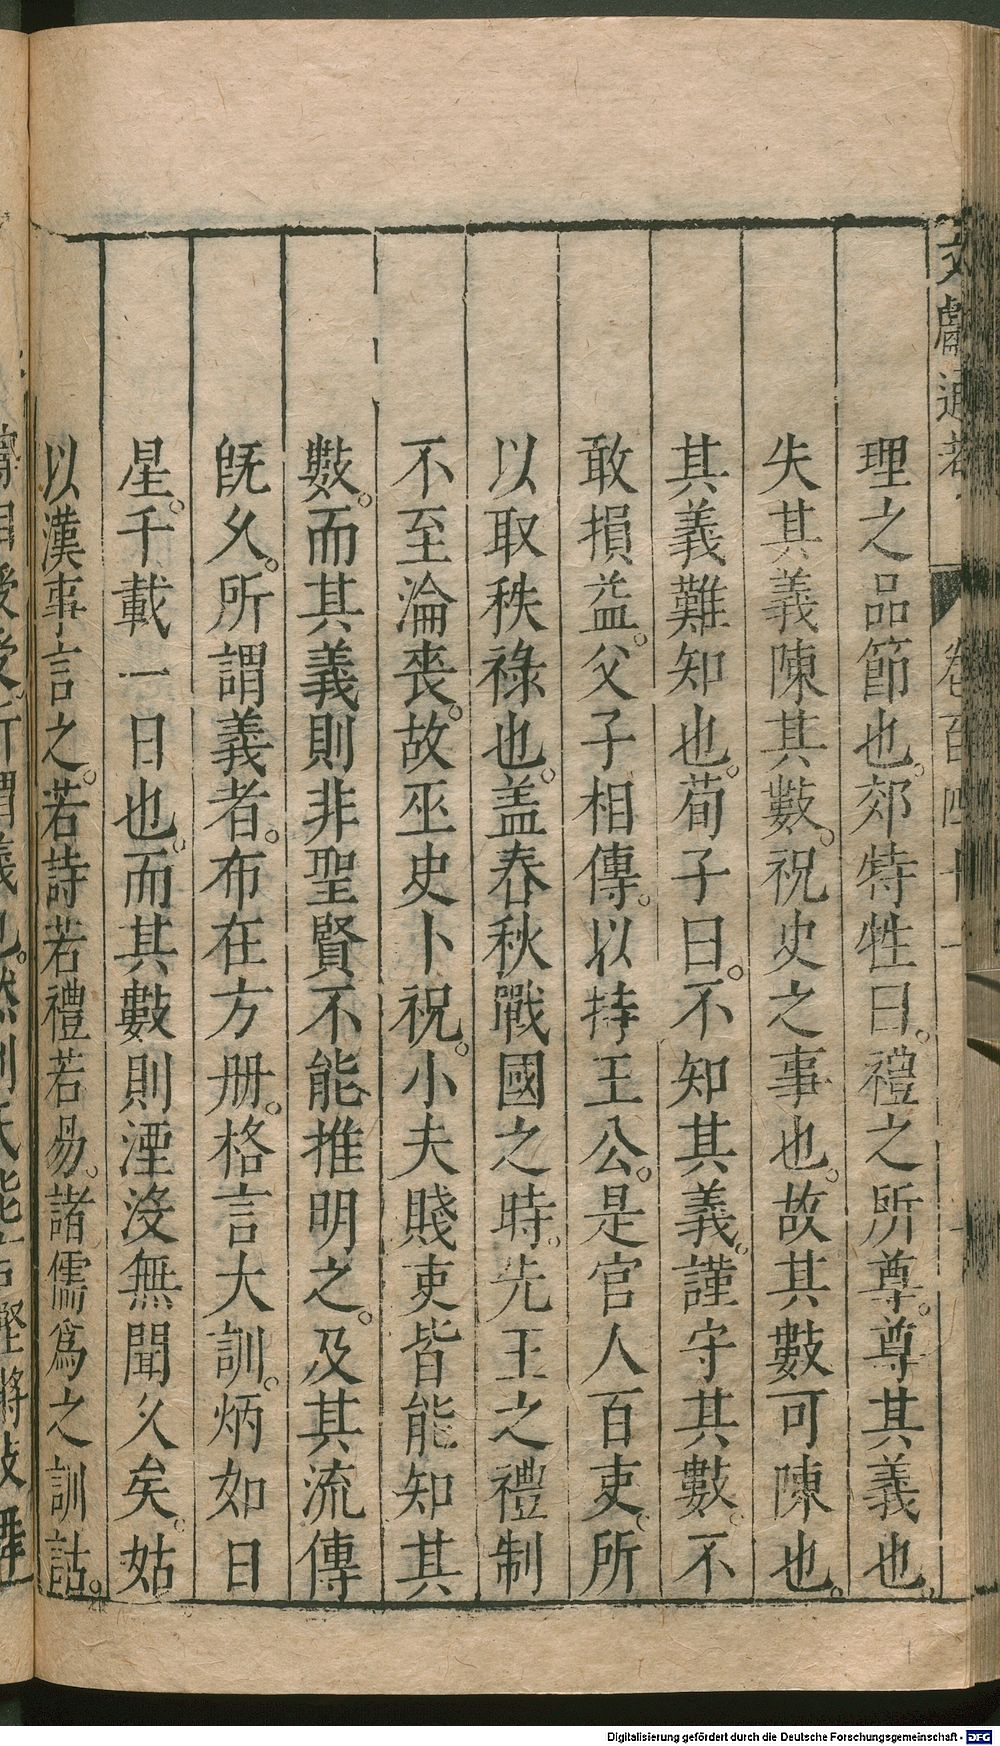 文獻通考
卷百四十一
理之品節也。郊特牲曰。禮之所尊。尊其義也。
失其義陳其數。祝史之事也。故其數可陳也。
其義難知也。荀子曰。不知其義。謹守其數。不
敢損益。父子相傳。以持王公。是官人百吏。所
以取秩祿也。盖春秋戰國之時。先王之禮制
不至淪喪。故巫史卜祝。小夫賤吏皆能知其
數。而其義則非聖賢不能推明之。及其流傳
既久。所謂義者。布在方册。格言大訓。炳如日
星。千載一日也。而其數則湮沒無聞久矣。姑
以漢事言之。若詩若禮若易。諸儒爲之訓詁。
Digitalisierung gefördert durch die Deutsche Forschungsgemeinschaft - DFG